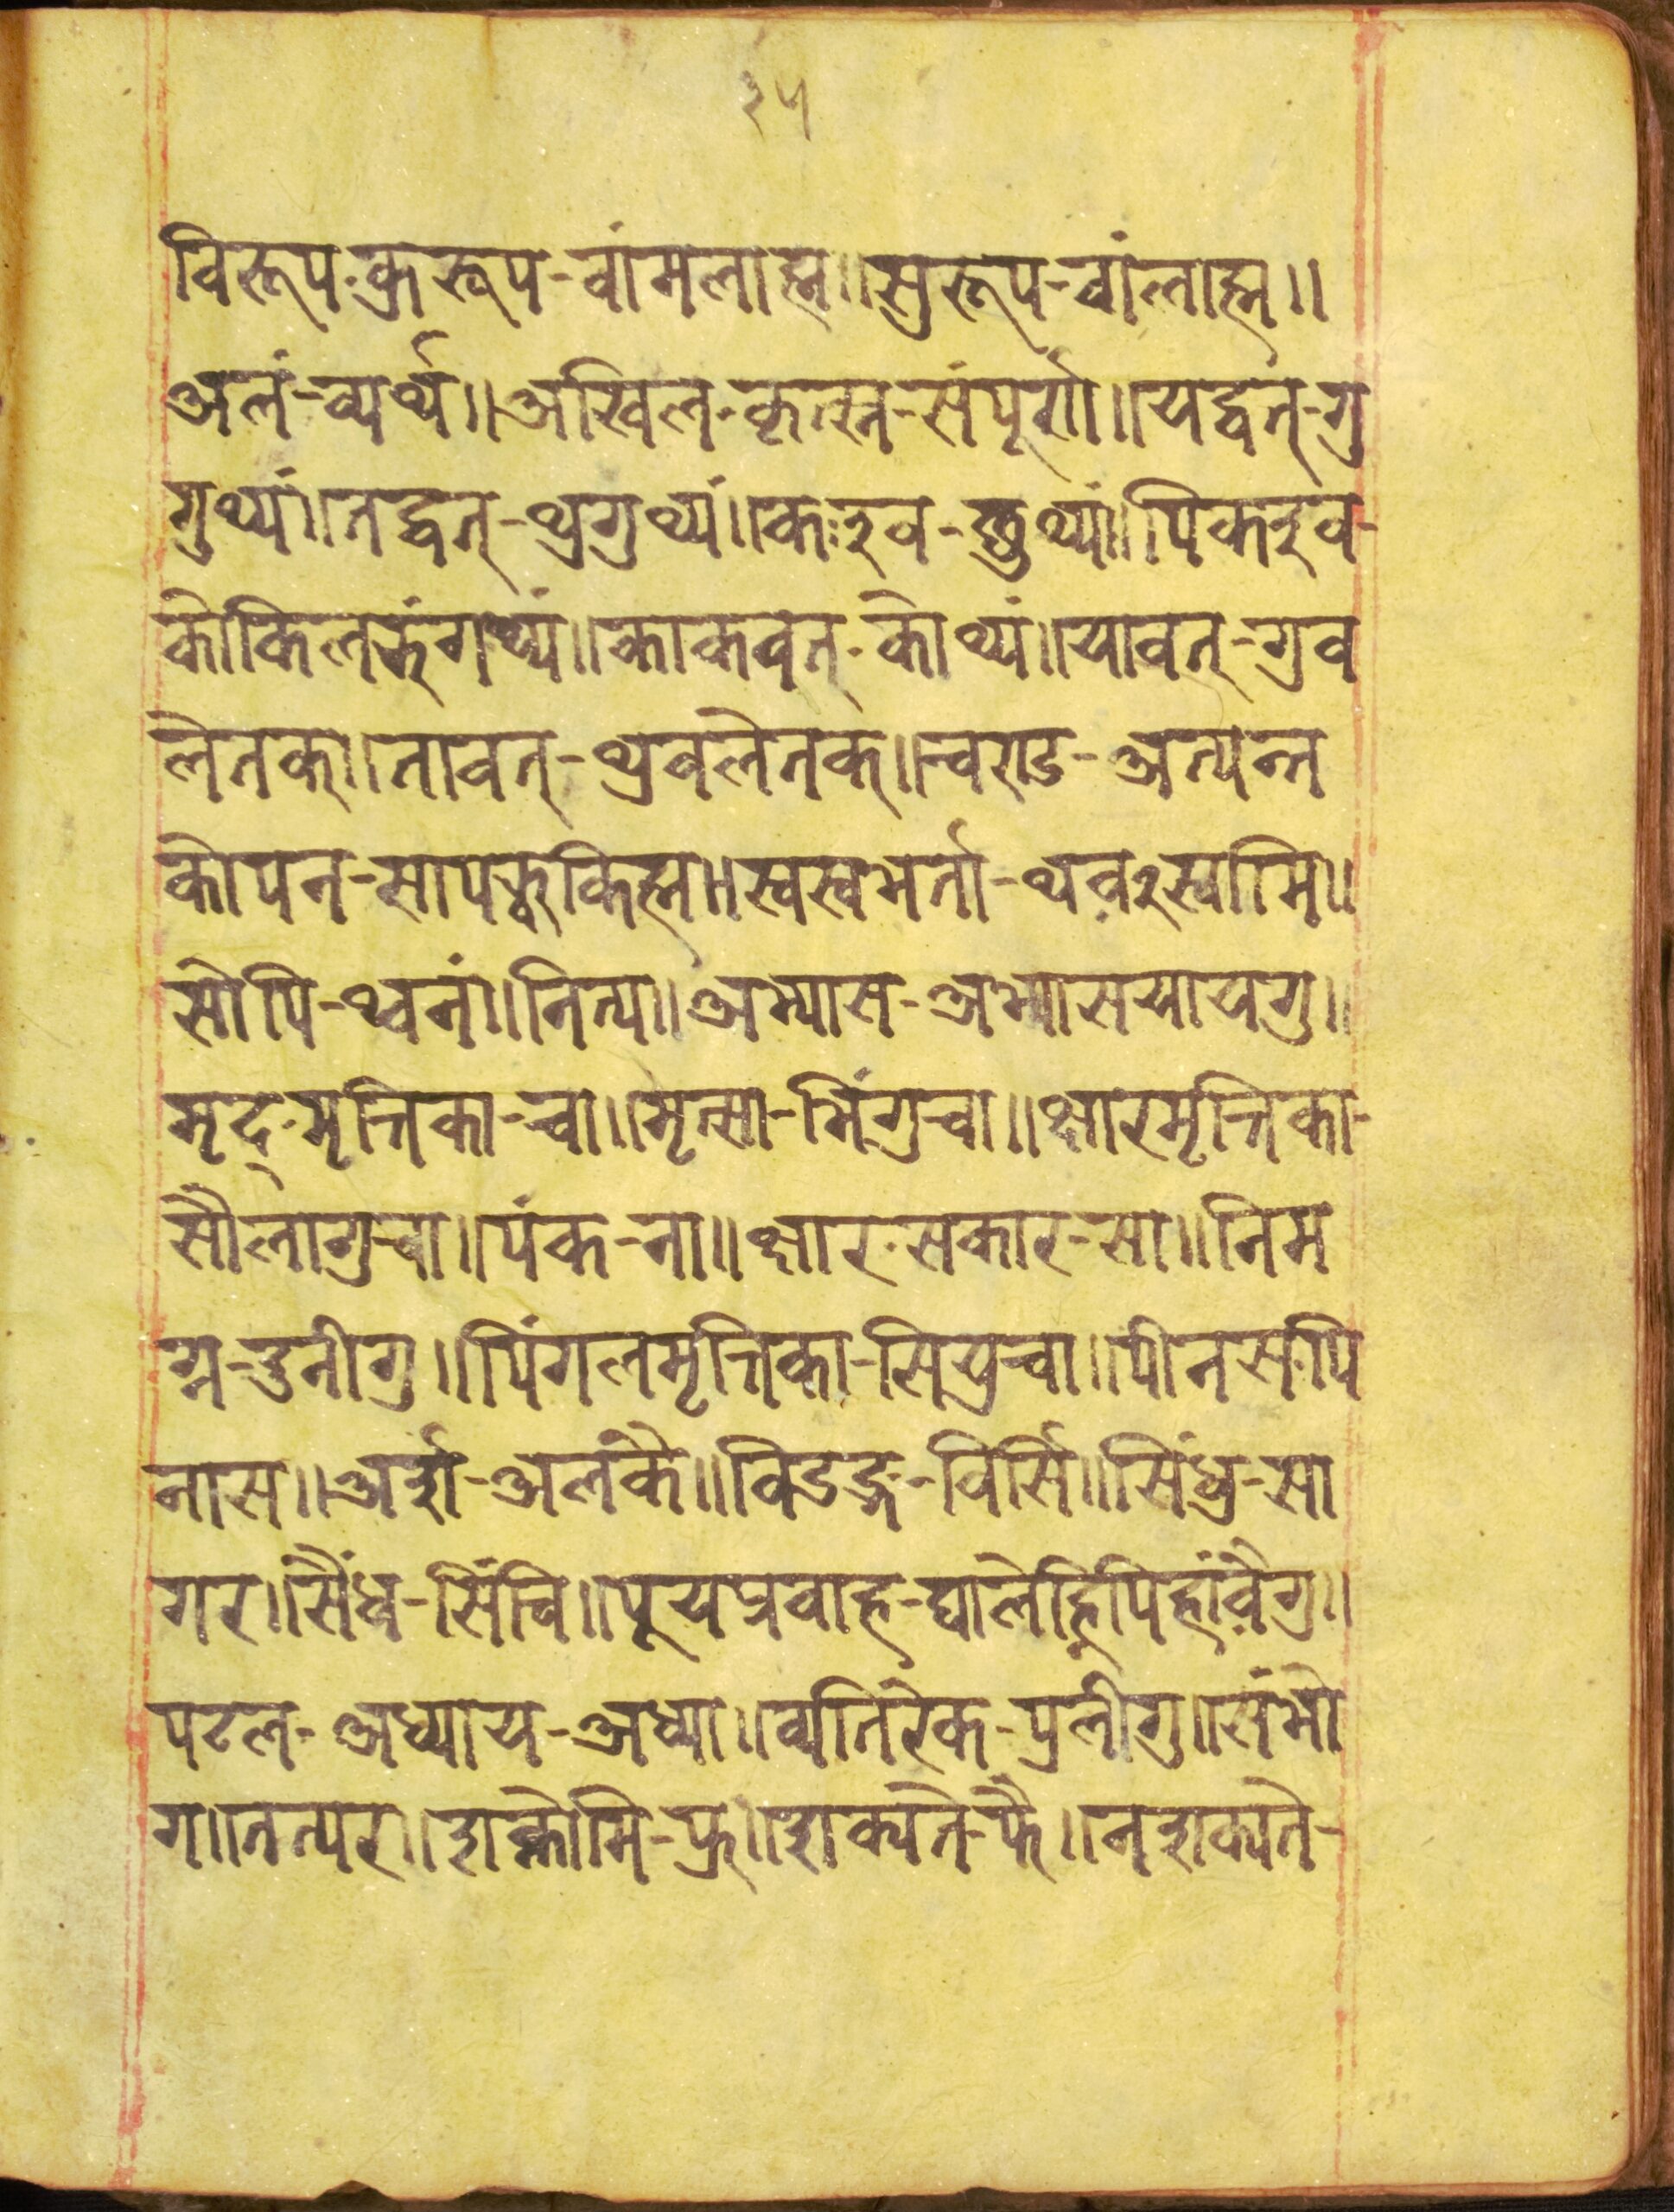 ३५
विरूप-कुरूप-वांमलाह्म॥सुरूप-वांलाह्म॥
अलं-व्यर्थ॥अखिल-कृत्स्न-संपूर्ण॥यद्वत्-गु
गुथ्यं॥तद्वत्-थुगुथ्यं॥कःइव-छुथ्यं॥पिकइव-
कोकिलझंगथ्यं॥काकवत्-कोथ्यं॥यावत्-गुव
लेतक्॥तावत्-थुवलेतक्॥चण्ड-अत्यन्त
कोपन-सापझ्वकिह्म॥स्वस्वभर्ता-थवइस्वामि॥
सोपि-थ्वनं॥नित्य॥अभ्यास-अभ्यासयायगु॥
मृद्-मृत्तिका-चा॥मृत्सा-भिंगुचा॥क्षारमृत्तिका-
सौलागुचा॥पंक-ना॥क्षार-सकार-सा॥निम
ग्न-दुनीगु॥पिंगलमृत्तिका-सियुचा॥पीनस-पि
नास॥अर्श-अलकै॥विडङ्ग-विर्सि॥सिंधु-सा
गर॥सैंधव-सिंचि॥पूयप्रवाह-घालेहिपिहांवैगु॥
पटल-अध्याय-अध्या॥व्यतिरेक-पुलीगु॥संभो
ग॥तत्पर॥शक्नोमि-फु॥शक्यते-फै॥नशक्यते-